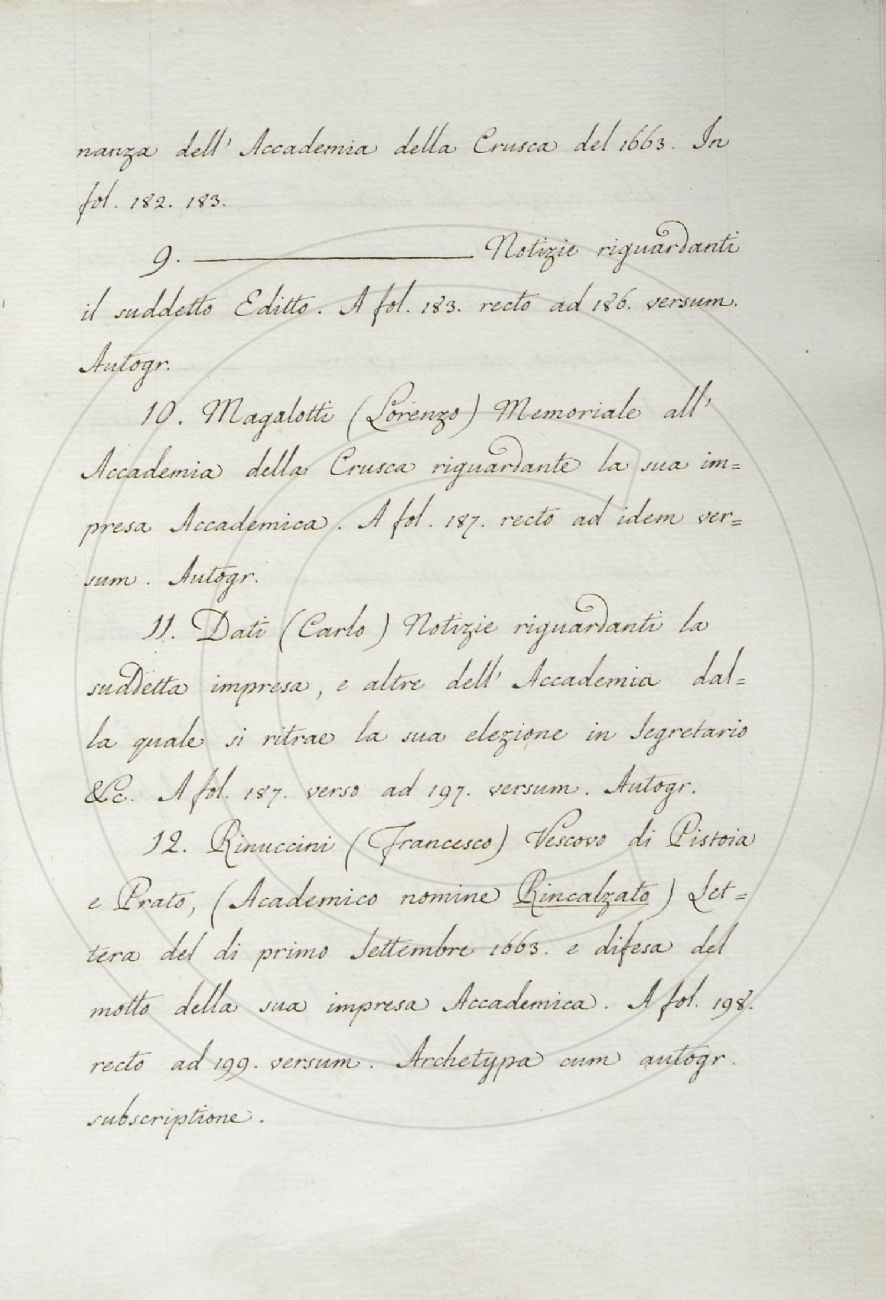 nanza dell' Accademia della Crusca del 1663. In
fol. 182. 183.
9. ⸻ Notizie riguardanti
il suddetto Editto. A fol. 183. recto ad 186. versum.
Autogr.
10. Magalotti (Lorenzo) Memoriale all'
Accademia della Crusca riguardante la sua im=
presa Accademica. A fol. 187. recto ad idem ver=
sum. Autogr.
11. Dati (Carlo) Notizie riguardanti la
suddetta impresa, e altre dell' Accademia dal=
la quale si ritrae la sua elezione in Segretario
&c. A fol. 187. verso ad 197. versum. Autogr.
12. Rinuccini (Francesco) Vescovo di Pistoia
e Prato, (Academico nomine Rincalzato) Let=
tera del di primo Settembre 1663. e difesa del
motto della sua impresa Accademica. A fol. 198.
recto ad 199. versum. Archetypa cum autogr.
subscriptione.